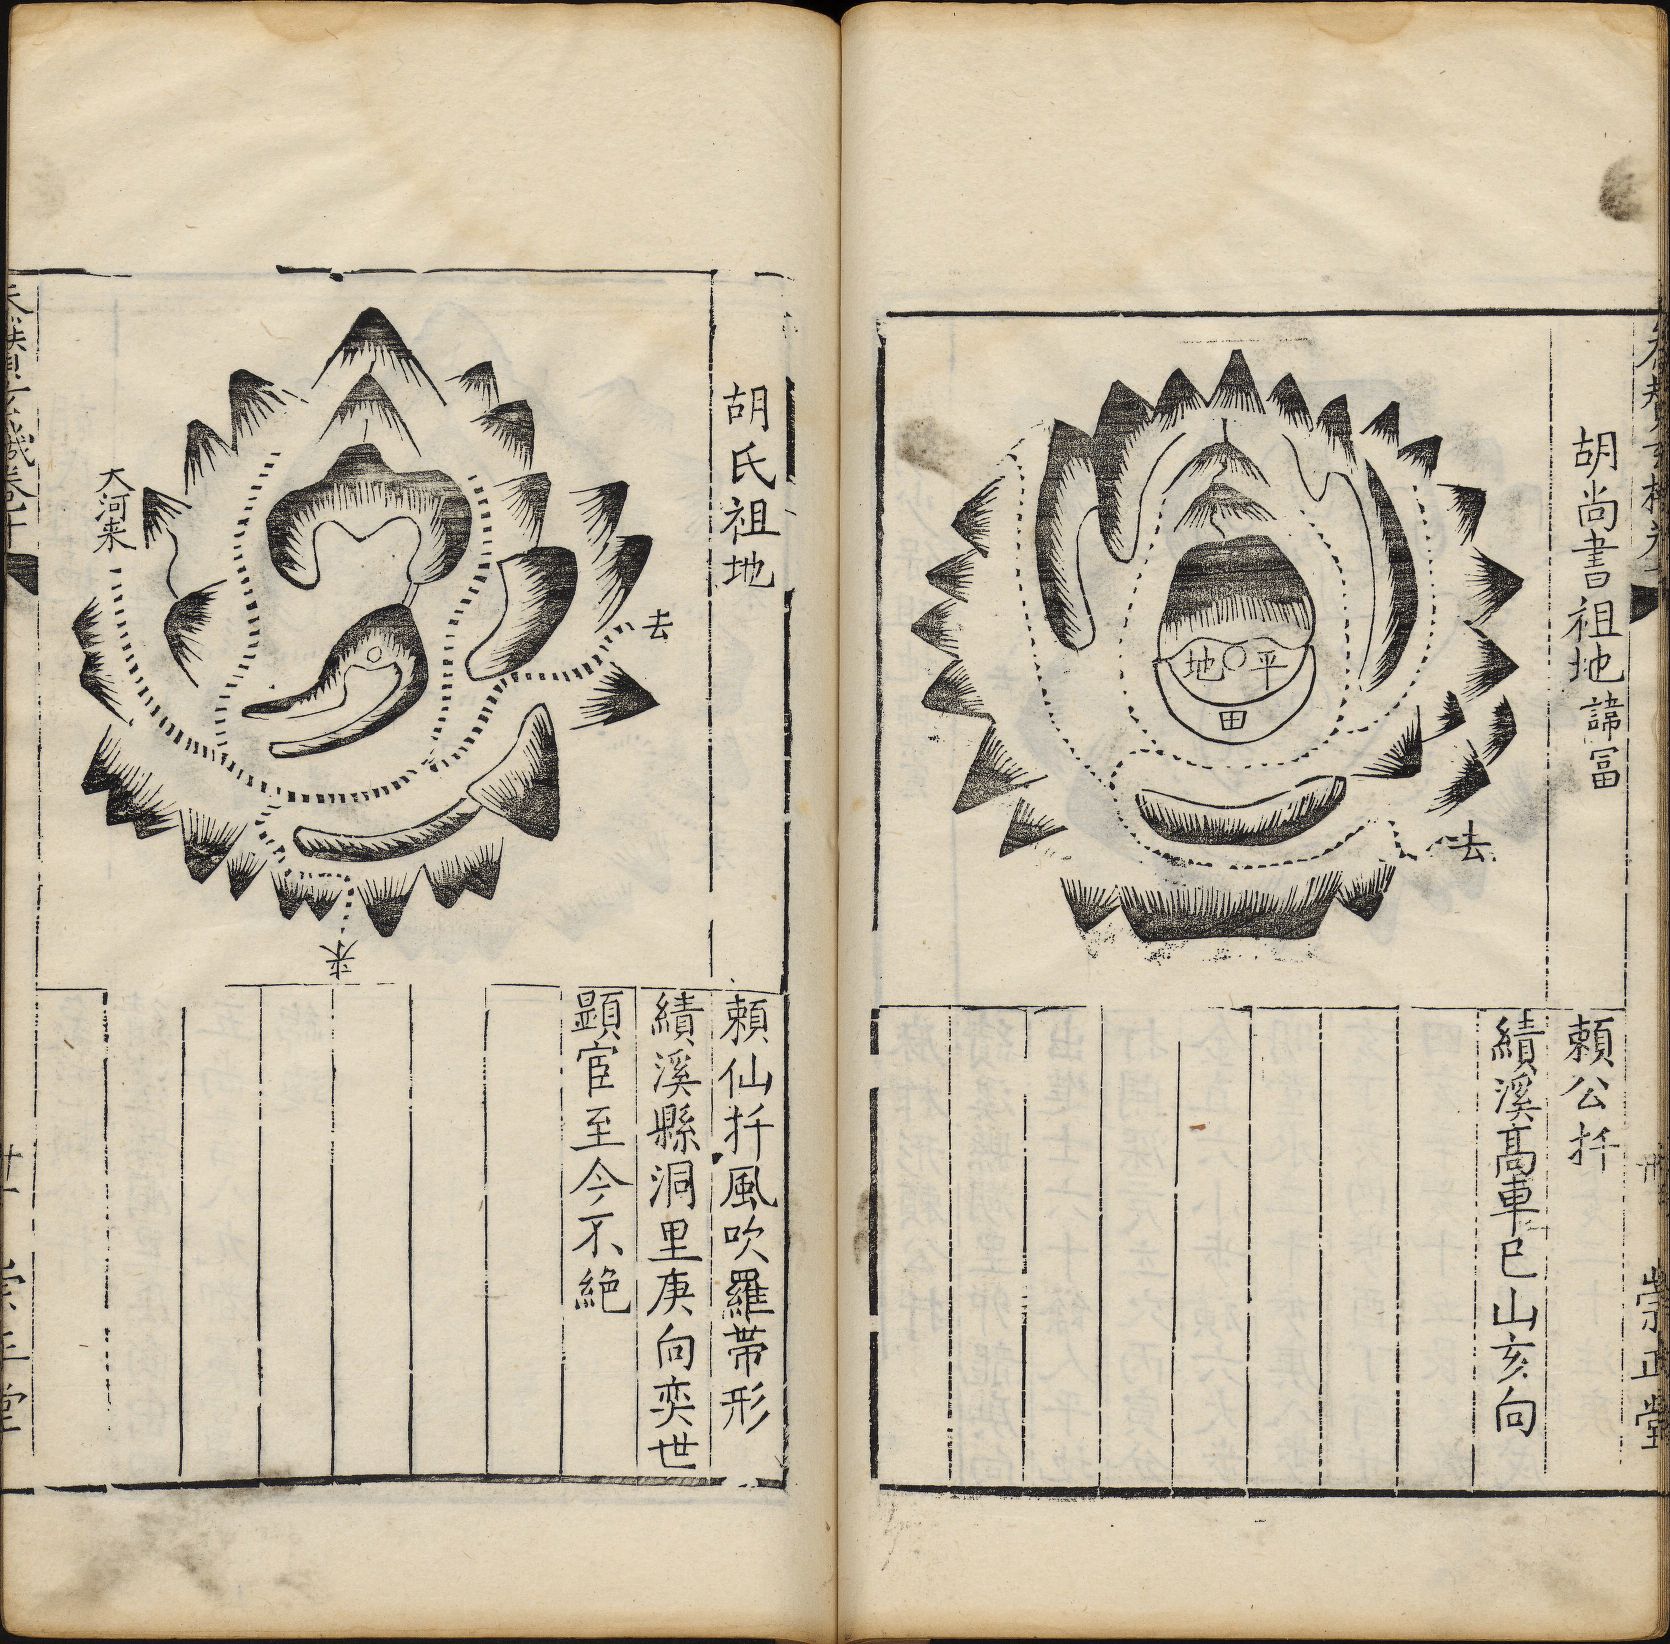 胡尚書祖地諱冨
平
地
田
去
頼公扦
績溪髙車巳山亥向
崇正堂
胡氏祖地
大河来
去
来
頼仙扦風吹羅帶形
績溪縣洞里庚向奕世
顕宦至今不絶